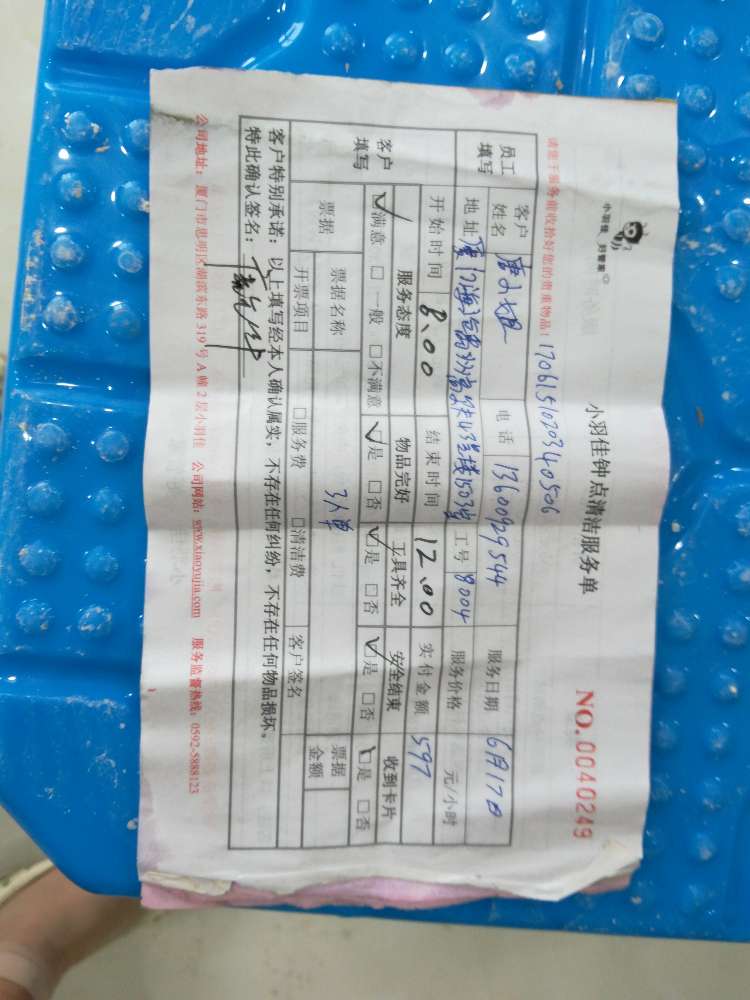 小羽佳 好管家
小羽佳钟点清洁服务单
NO. 0040249
请您于服务前收拾好您的贵重物品! 1706151020340506
员工填写
客户姓名 唐小姐 电话 13600929544 服务日期 6月17日
地址 厦门海沧 43号楼1503室 工号 8004 服务价格 元/小时
开始时间 8.00 结束时间 12.00 实付金额 597
客户填写
服务态度 物品完好 工具齐全 安全结束 收到卡片
☑满意 □一般 □不满意 ☑是 □否 ☑是 □否 ☑是 □否 ☑是 □否
票据 票据名称 3人单 客户签名 票据金额
开票项目 □服务费 □清洁费
客户特别承诺:以上填写经本人确认属实,不存在任何纠纷,不存在任何物品损坏。
特此确认签名:
公司地址:厦门市思明区湖滨东路 319 号 A 幢 2 层小羽佳 公司网站:www.xiaoyujia.com 服务监督热线:0592-5888123